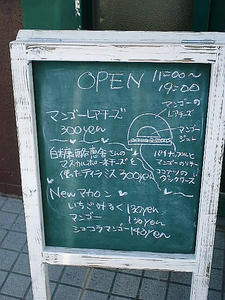 OPEN 11:00～
19:00
マンゴーレアチーズ
300yen
マンゴーの
レアチーズ
マンゴー
ジュレ
パイナップルと
マンゴーのソテー
ココナッツの
ダックワーズ
白糠酪恵舎さんの
マスカルポーネチーズを
使ったティラミス 300yen
Newマカロン
いちごみるく 130yen
マンゴー 130yen
ショコラマンゴー 140yen